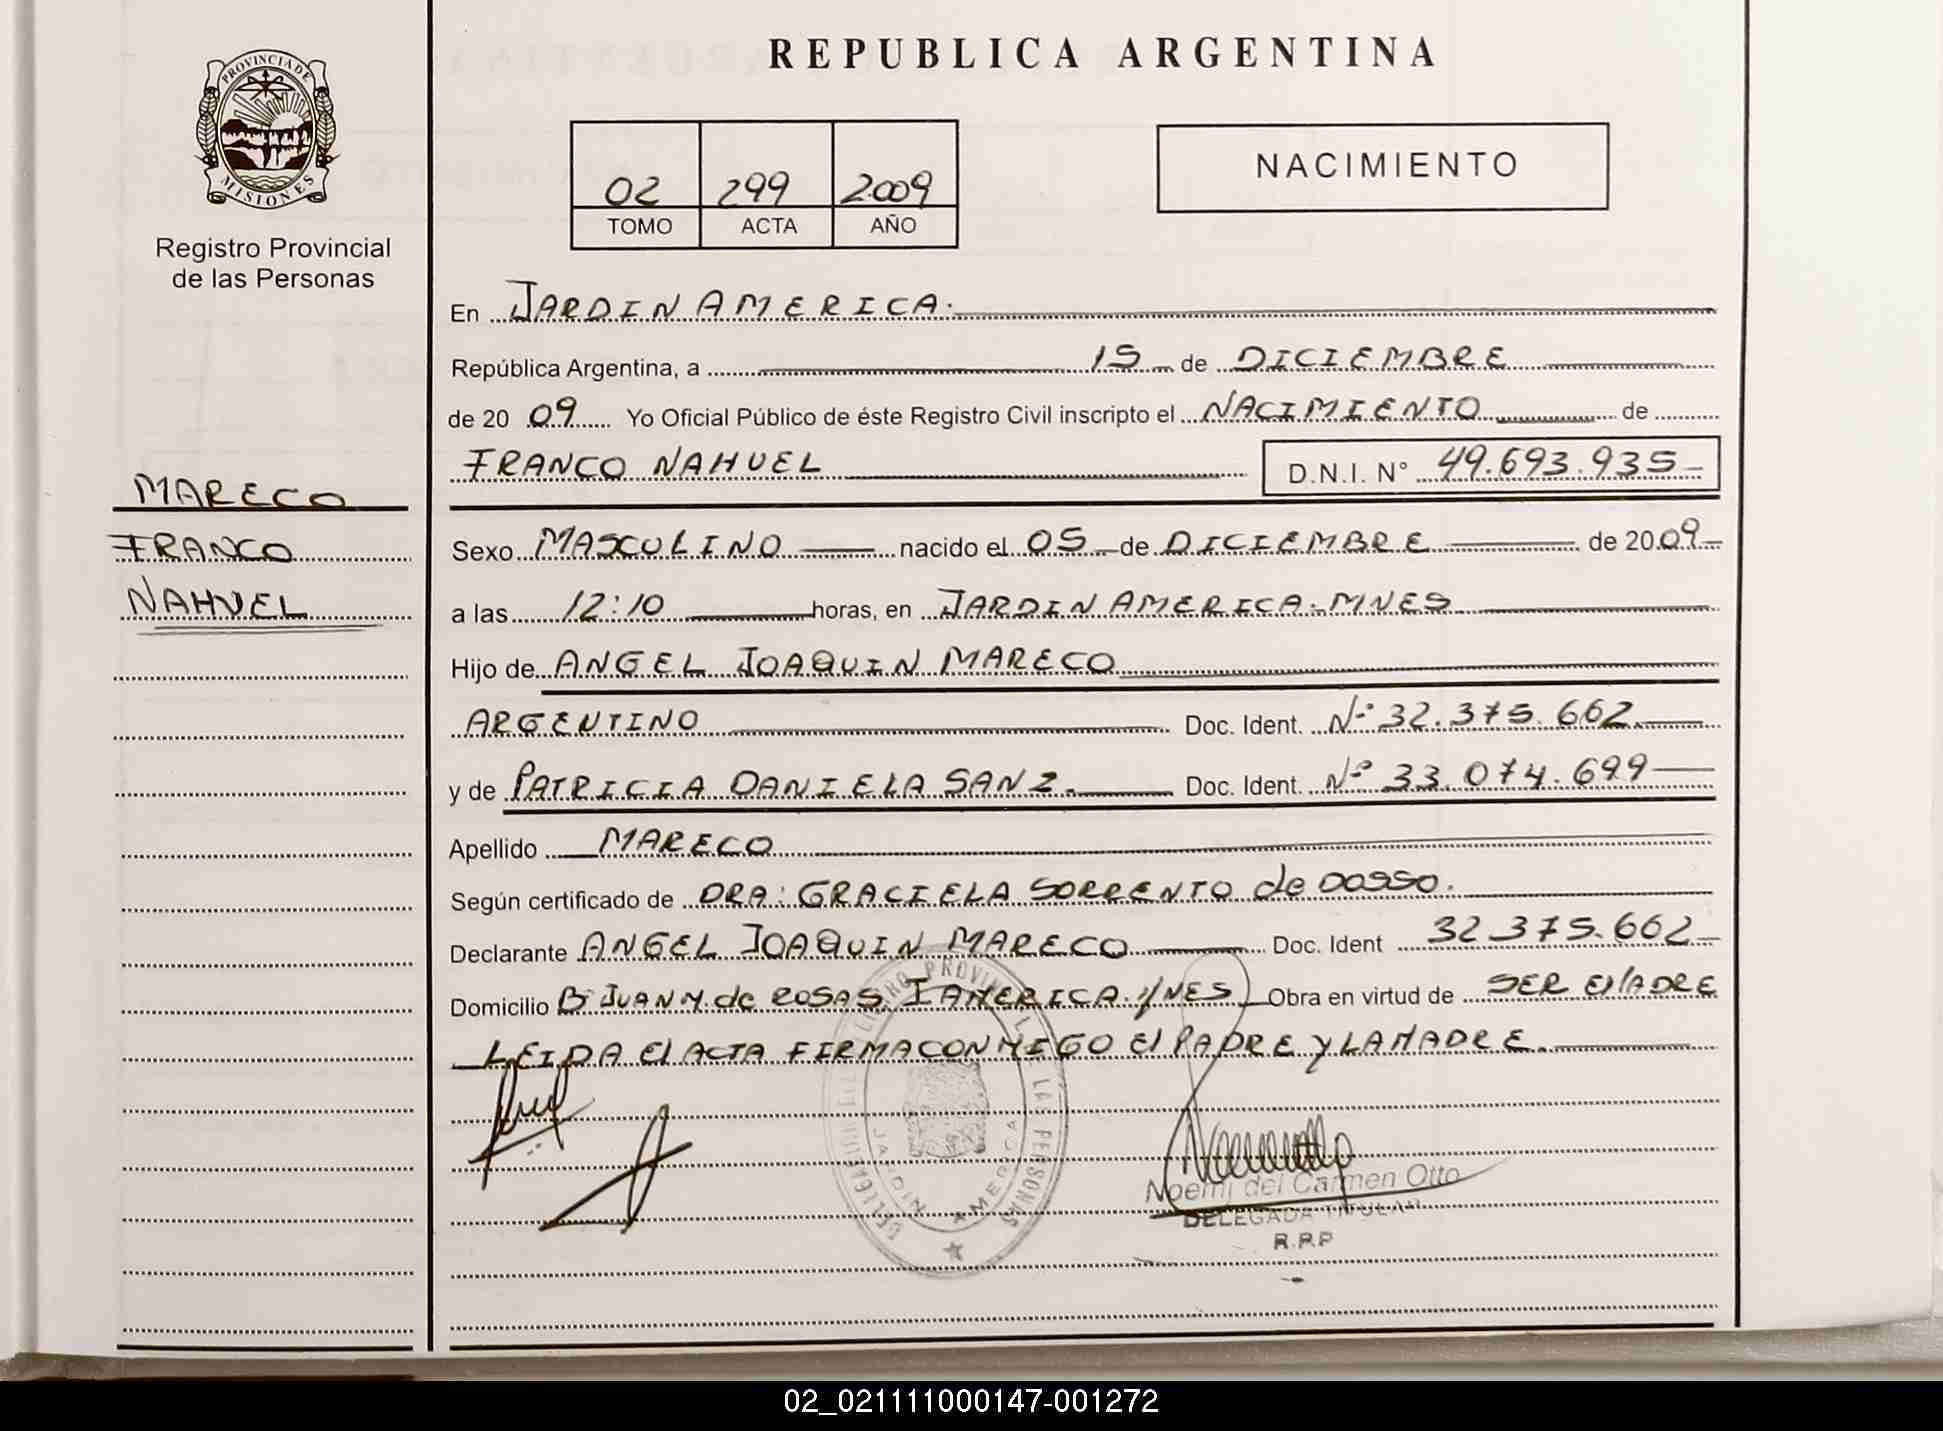 REPUBLICA ARGENTINA
PROVINCIA DE
MISIONES
Registro Provincial
de las Personas
02 299 2009
TOMO ACTA AÑO
NACIMIENTO
En JARDIN AMERICA.
República Argentina, a 15 de DICIEMBRE
de 20 09 Yo Oficial Público de éste Registro Civil inscripto el NACIMIENTO de
FRANCO NAHUEL D.N.I. N° 49.693.935
MARECO
FRANCO
NAHUEL
Sexo MASCULINO nacido el 05 de DICIEMBRE de 2009
a las 12:10 horas, en JARDIN AMERICA-MNES
Hijo de ANGEL JOAQUIN MARECO
ARGENTINO Doc. Ident. Nº 32.375.662
y de PATRICIA DANIELA SANZ. Doc. Ident. Nº 33.074.699
Apellido MARECO
Según certificado de DRA: GRACIELA SORRENTO de DOSSO.
Declarante ANGEL JOAQUIN MARECO Doc. Ident 32.375.662
Domicilio Bº JUAN M. de ROSAS J AMERICA. MNES Obra en virtud de SER El PADRE
LEIDA El ACTA FIRMA CONMIGO El PADRE Y LA MADRE.
DELEGACION REGISTRO PROVINCIAL DE LAS PERSONAS
JARDIN AMERICA
Noemi del Carmen Otto
DELEGADA TITULAR
R.R.P
02_021111000147-001272